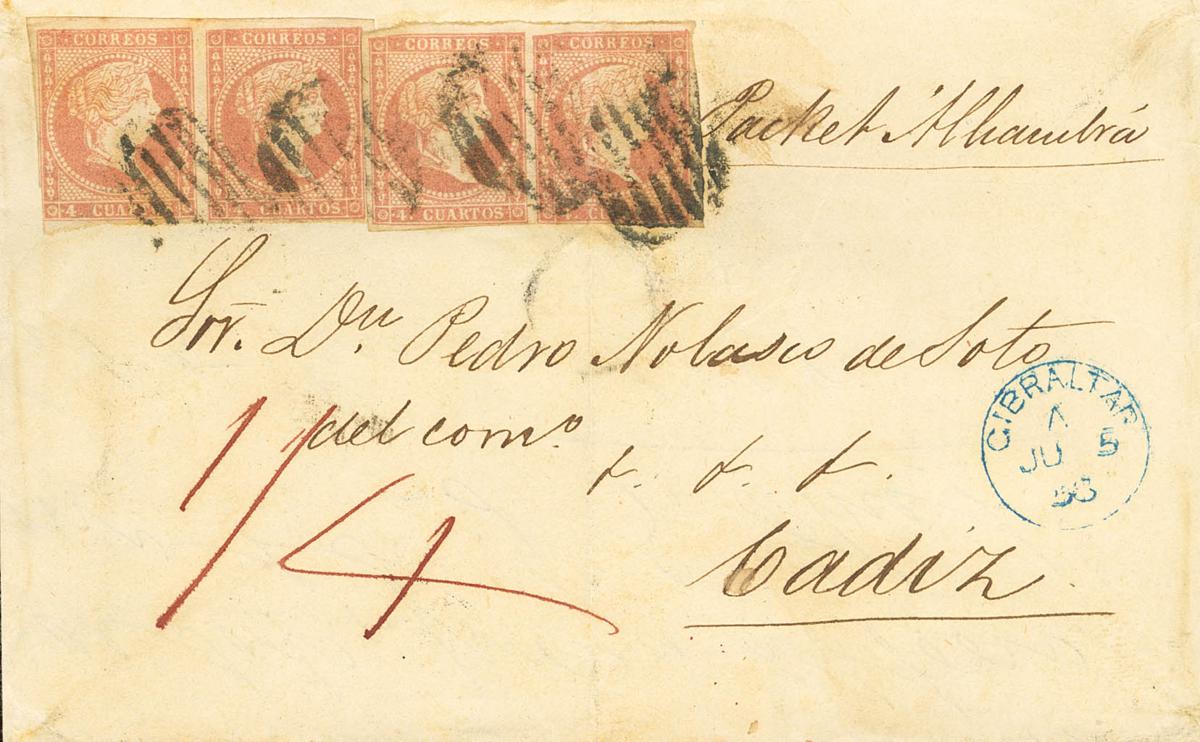 CORREOS CORREOS CORREOS CORREOS
4 CUARTOS 4 CUARTOS 4 CUARTOS
Packet Alhambra
Sor. Dn. Pedro Nolasco de Soto
del como
1/4
GIBRALTAR
A
JU 5
58
Cadiz.